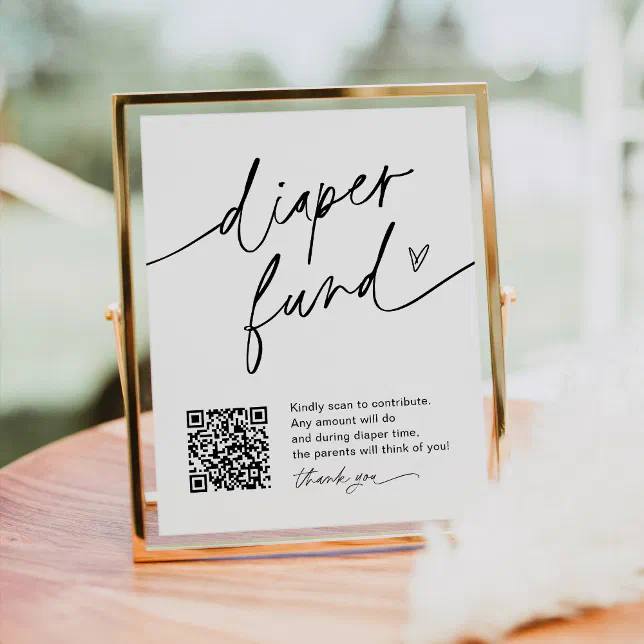 diaper
fund
Kindly scan to contribute.
Any amount will do
and during diaper time,
the parents will think of you!
thank you